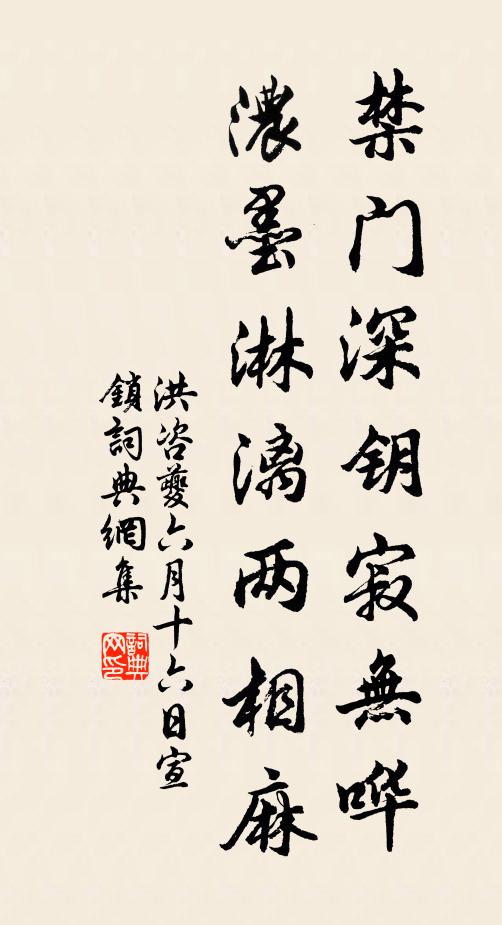 禁门深钥寂無哗
濃墨淋漓两相麻
洪咨夔六月十六日宣
鎖詞典網集
詞典
网印